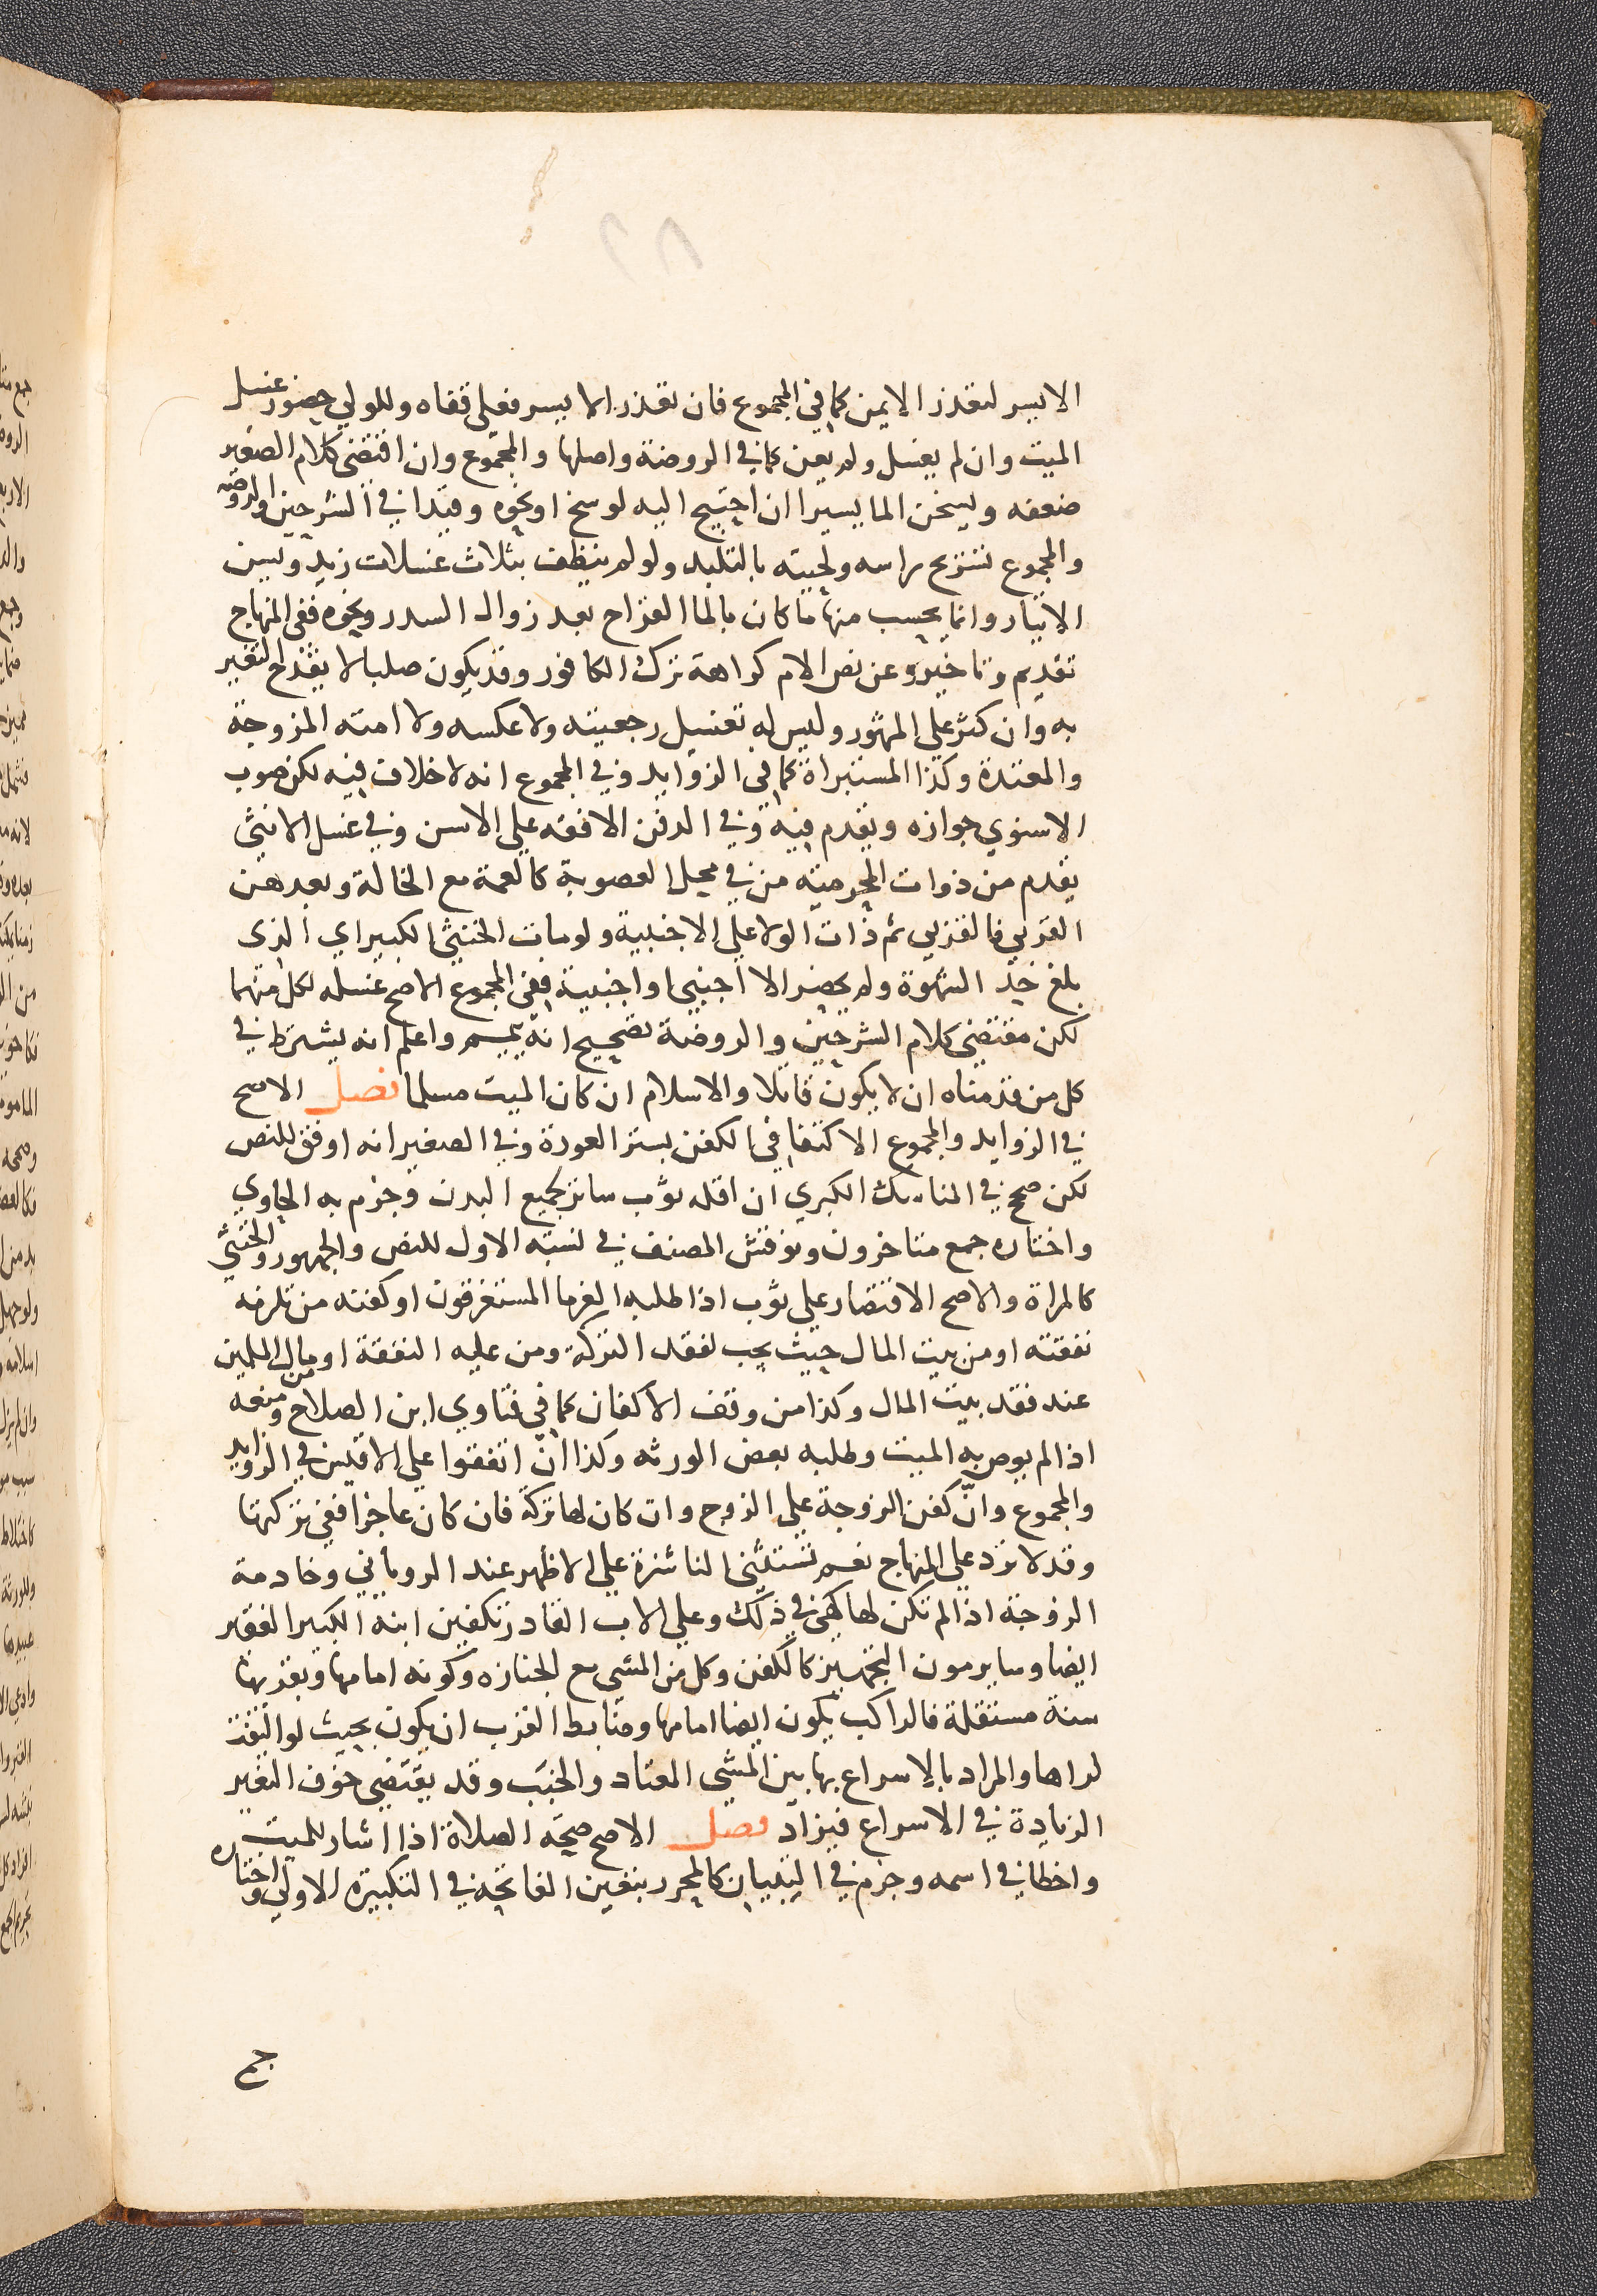 الايسر لتعذر الايمن كما في المجموع فان تعذر الايسر فعلى قفاه وللولي حضور غسل
الميت وان لم يغسل ولم يعن كما في الروضة واصلها والمجموع وان اقتضى كلام الصغير
ضعفه ويسخن الما يسيرا ان احتيج اليه لوسخ او نحوه وقيدا في الشرحين والروضة
والمجموع تسريح راسه ولحيته بالتلبد ولو لم ينظف بثلاث غسلات زيد ويسن
الايتار وانما يحسب منها ما كان بالما القراح بعد زوال السدر ونحوه ففي المنهاج
تقديم وتاخير وعن نص الام كراهة ترك الكافور وقد يكون صلبا لا يقدح التغير
به وان كثر على المشهور وليس له تغسيل رجعيته ولا عكسه ولا امته المزوجة
والمعتدة وكذا المستبراة كما في الزوايد وفي المجموع انه لا خلاف فيه لكن صوب
الاسنوي جوازه ويقدم فيه وفي الدفن الافقه على الاسن وفي غسل الانثى
يقدم من ذوات المحرمية من في محل العصوبة كالعمة مع الخالة وبعدهن
القربى فالقربى ثم ذات الولا على الاجنبية ولو مات الخنثى الكبير اي الذي
بلغ حد الشهوة ولم يحضر الا اجنبي او اجنبية ففي المجموع الاصح غسله لكل منهما
لكن مقتضى كلام الشرحين والروضة تصحيح انه ييمم واعلم انه يشترط في
كل من قدمناه ان لا يكون قاتلا والاسلام ان كان الميت مسلما فصل الاصح
في الزوايد والمجموع الاكتفا في الكفن بستر العورة وفي الصغير انه اوفق للنص
لكن صحح في المناسك الكبرى ان اقله ثوب ساتر لجميع البدن وجزم به الحاوي
واختاره جمع متاخرون ونوقش المصنف في نسبة الاول للنص والجمهور والخنثى
كالمراة والاصح الاقتصار على ثوب اذا طلبه الغرما المستغرقون او كفنه من تلزمه
نفقته او من بيت المال حيث يجب لفقد التركة ومن عليه النفقة او من مال المسلمين
عند فقد بيت المال وكذا من وقف الاكفان كما في فتاوي ابن الصلاح ومنعه
اذا لم يوص به الميت وطلبه بعض الورثه وكذا ان اتفقوا على الاقيس في الزوايد
والمجموع وان كفن الزوجة على الزوج وان كان لها تركة فان كان عاجزا ففي تركتها
وقد لا ترد على المنهاج نعم تستثنى الناشزة على الاظهر عند الروياني وخادمة
الزوجة اذا لم تكن لها كهي في ذلك وعلى الاب القادر تكفين ابنه الكبير الفقير
ايضا وساير مون التجهيز كالكفن وكل من المشي مع الجنازه وكونه امامها وبقربها
سنة مستقلة فالراكب يكون ايضا امامها وضابط القرب ان يكون بحيث لو التفت
لراها والمراد بالاسراع بها بين المشي المعتاد والخبب وقد يقتضي خوف التغير
الزيادة في الاسراع فيزاد فصل الاصح صحة الصلاة اذا اشار للميت
واخطا في اسمه وجزم في التبيان كالمحرر بتعين الفاتحة في التكبيرة الاولى واختاره
جمع